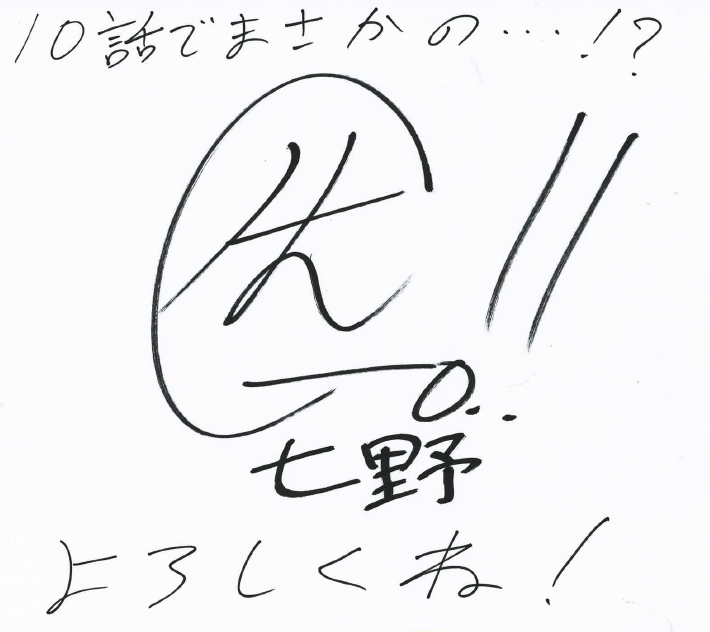 10話でまさかの…!?
七野
よろしくね!